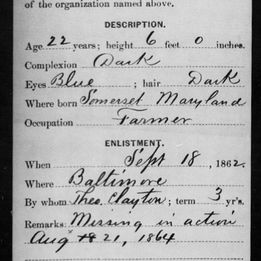 of the organization named above.
DESCRIPTION.
Age 22 years; height 6 feet 0 inches.
Complexion Dark
Eyes Blue ; hair Dark
Where born Somerset Maryland
Occupation Farmer
ENLISTMENT.
When Sept 18 , 1862.
Where Baltimore
By whom Theo. Clayton ; term 3 yr's.
Remarks: Missing in action
Aug 21, 1864